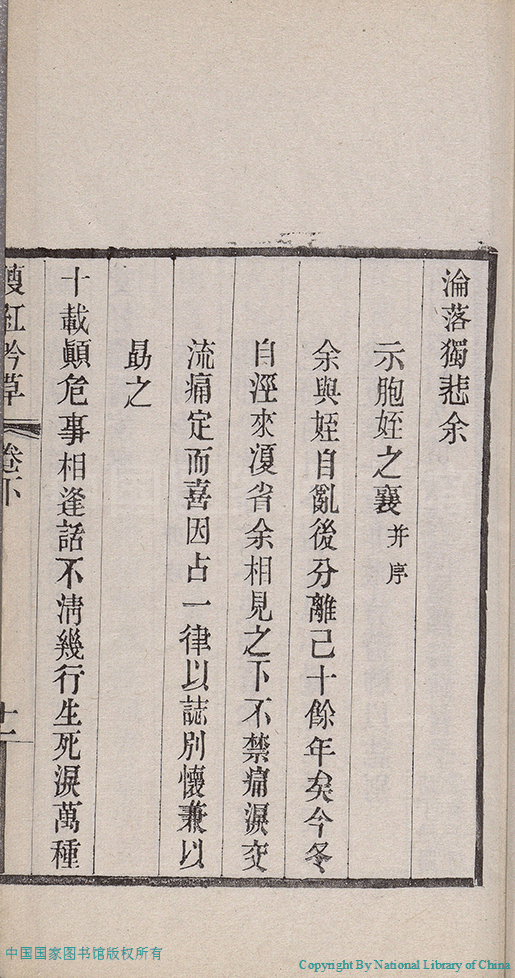 淪落獨悲余
示胞姪之襄并序
余與姪自亂後分離己十餘年矣今冬
自涇來省余相見之下不禁痛淚交
流痛定而喜因占一律以誌別懷兼以
勗之
十載顛危事相逢話不清幾行生死淚萬種
紅吟草 卷下
中国国家图书馆版权所有
Copyright By National Library of China